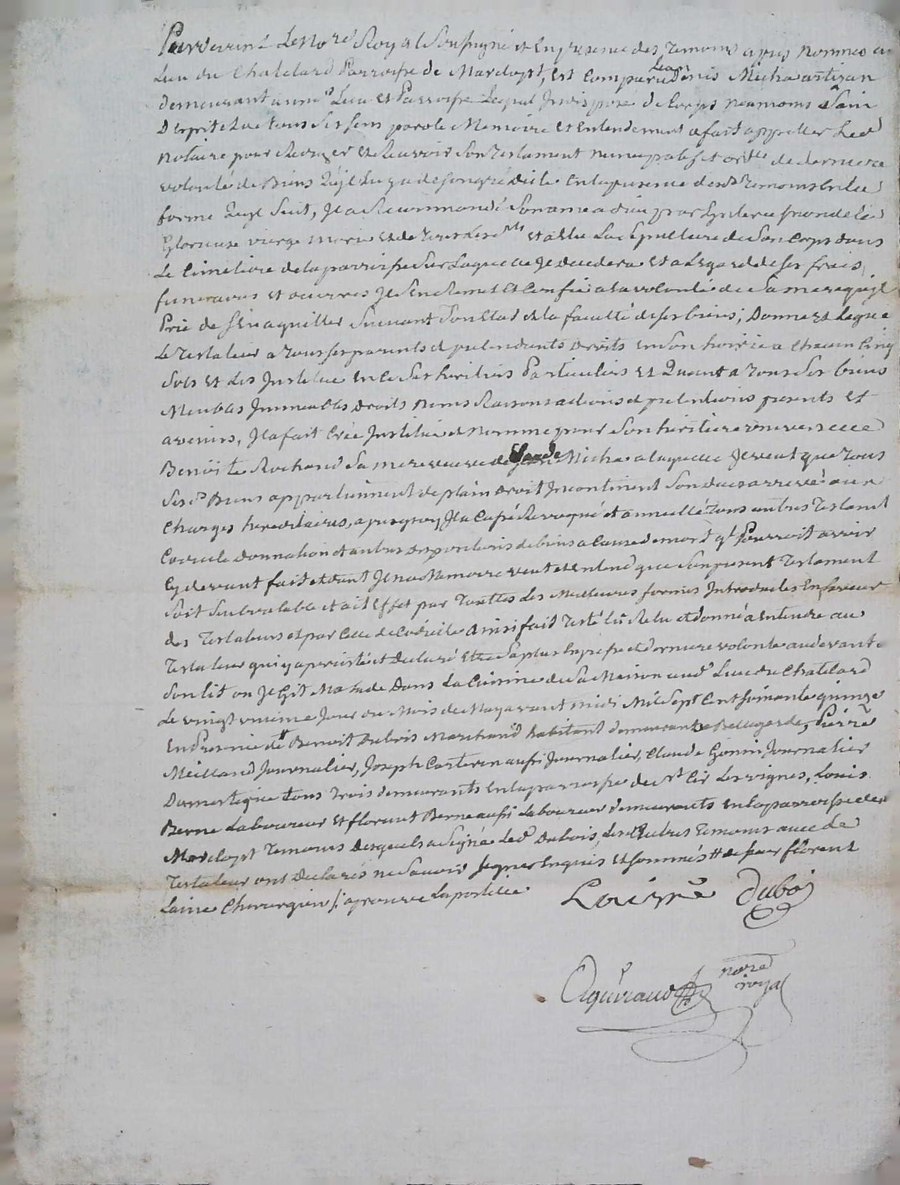 Pardevant Le Nore Royal Soussigné et En presence des Temoins apres nommés au
Lieu du Chatelard Parroisse de Marclopt, Est Comparu Denis Micha artisan
demeurant aud Lieu et Parroisse Lequel de Corps neanmoins Sain
D'Esprit de tous Ses Sens parole Memoire et Entendement a fait appeller Led
Notaire pour Rediger et Recevoir Son Testament nuncupatif et de derniere
volonté de Biens quil Luy a de son gré dicté En la presence desd Temoins En la
forme quil Suit, Il a Recommandé Son ame a dieu par
Glorieuse vierge marie et de tous Les Sts et a Elu La Sepulture de Son Corps dans
Le Cimetiere de la parroisse Sur Laquelle Il decedera Et a Legard de Ses frais
funeraires et œuvres Il S'en Remet et Confie a la volonté de Sa mere quil
Prie de S'en aquitter Suivant Son Etat et la faculté de Ses biens; Donne et Legue
Le Testateur a Tous Ses parents et pretendants Droits en Son hoirie a Chacun Cinq
Sols et Les Institue Ses heritiers Particuliers Et Quant a Tous Ses biens
Meubles Immeubles Droits Noms Raisons actions et pretentions presents Et
avenirs, Il a fait Créé Institué et Nommé pour Son heritiere universelle
Benoite Rochand Sa mere veuve de Micha a laquelle Il veut que Tous
Sesd Biens appartiennent de plain Droit Incontinent Son deces arrivé
Charges hereditaires, apres quoy Il a Cassé Revoqué et annullé Tous autres Testament
Codicile donnation et autres dispositions de biens a Cause de mort ql Pourroit avoir
Cy devant fait et dont Il na Memoire veut et entend que Son present Testament
Soit Seul valable et ait Effet par Touttes Les Meilleures formes Introduites En faveur
des Testateurs et par Celle de Codicile ainsi fait Testé lû Relu et donné a entendre au
Testateur qui y a persisté et declaré Etre Sa plus Expresse et derniere volonté audevant
Son lit ou Il Git Malade Dans La Cuisine de Sa Maison aud Lieu du Chatelard
Le vingt unieme Jour du Mois de May avant midi Mil Sept Cent Soixante quinze
En Presence de Sr Benoit Dubois Marchand habitant demeurant a Bellegarde, Pierre
Meilland Journalier, Joseph Carteron aussi Journalier, Claude Gonin Journalier
Domestique tous Trois demeurants En la parroisse de St Cir Les vignes, Louis
Berne Laboureur Et florent Berne aussi Laboureur demeurants En la parroisse dud
Marclopt Temoins Desquels a Signé Led Dubois, Les autres Temoins avec Le
Testateur ont Declarés ne Savoir Signer Enquis Et Sommés florent
Laine Chirurgien aprouvé La postille
Dubois
noire
royal